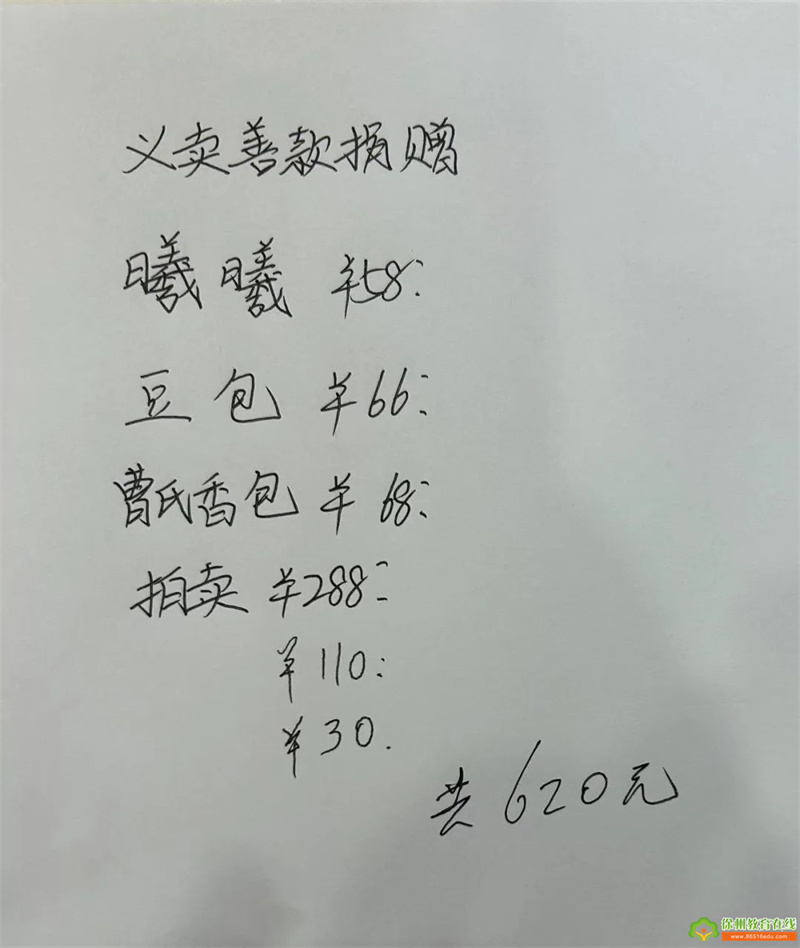 义卖善款捐赠
曦曦 ¥58:
豆包 ¥66:
曹氏香包 ¥68:
拍卖 ¥288:
¥110:
¥30.
共620元
徐州教育在线
www.86516edu.com